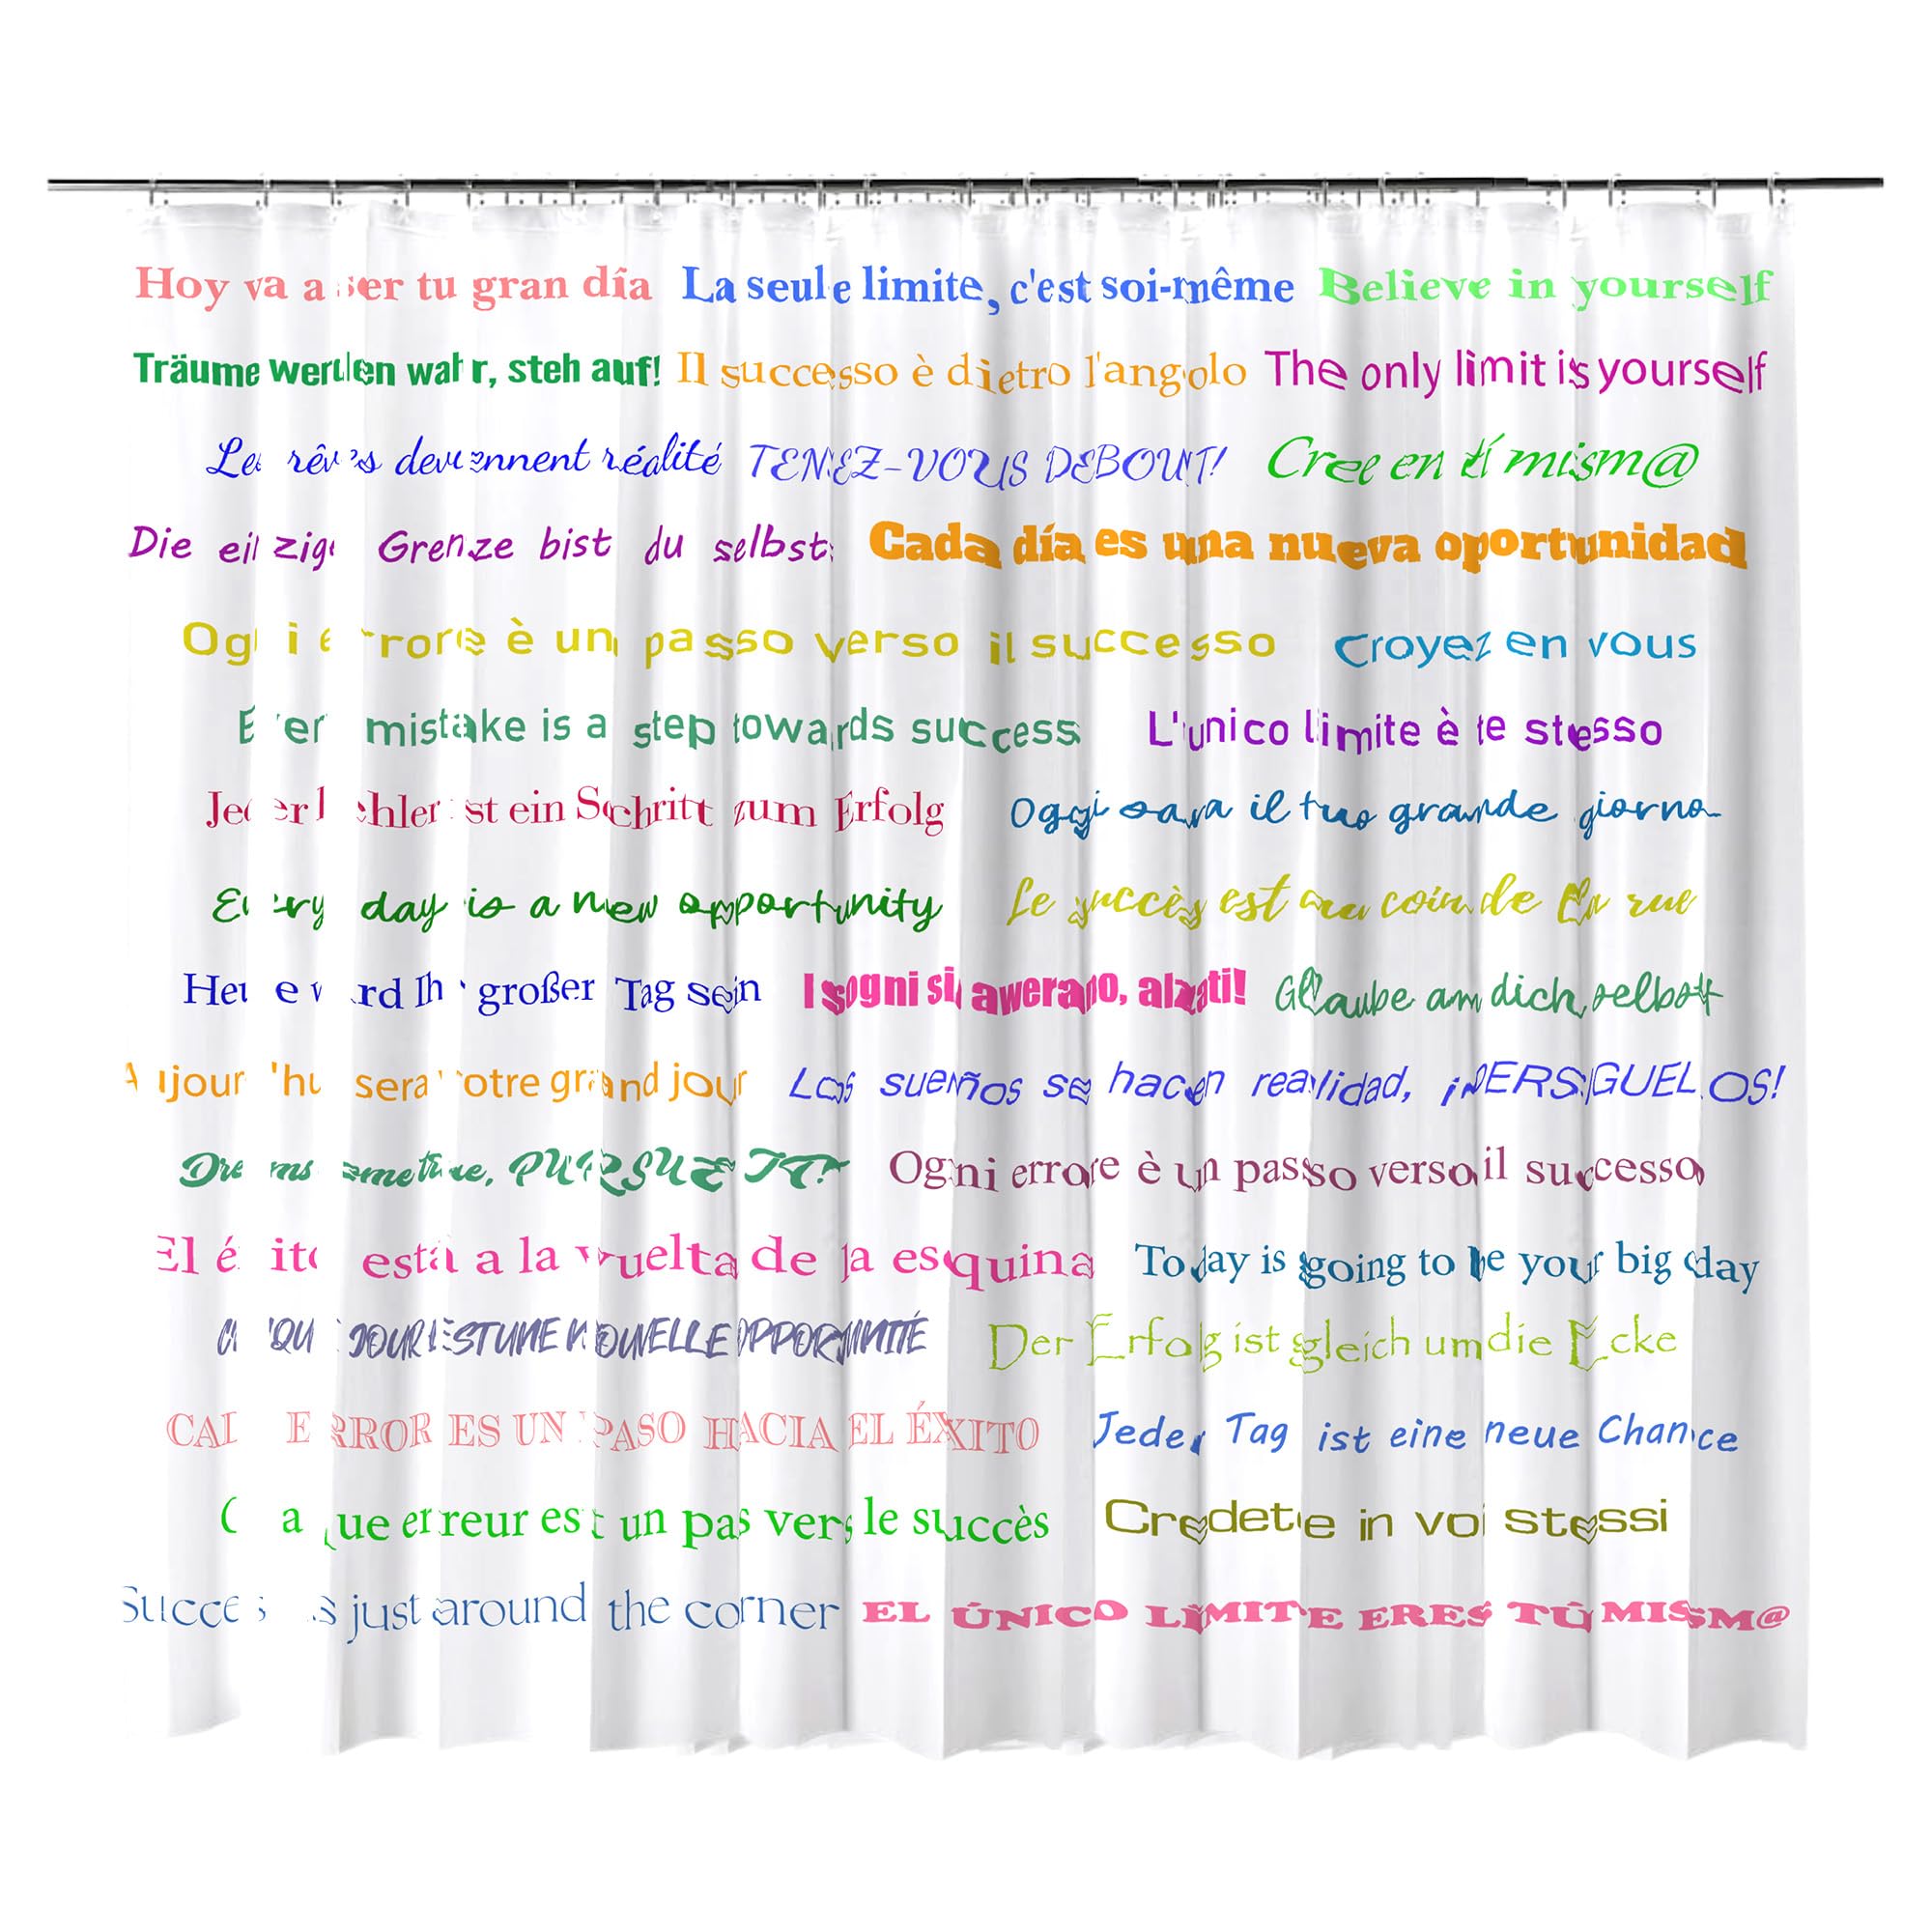 Hoy va a ser tu gran día La seule limite, c'est soi-même Believe in yourself
Träume werden wahr, steh auf! Il successo è dietro l'angolo The only limit is yourself
Les rêves deviennent réalité TENEZ-VOUS DEBOUT! Cree en tí mism@
Die einzige Grenze bist du selbst Cada día es una nueva oportunidad
Ogni errore è un passo verso il successo Croyez en vous
Every mistake is a step towards success L'unico limite è te stesso
Jeder Fehler ist ein Schritt zum Erfolg Oggi sara il tuo grande giorno
Every day is a new opportunity Le succès est au coin de la rue
Heute wird Ihr großer Tag sein I sogni si awerano, alzati! Glaube an dich selbst
Aujourd'hui sera votre grand jour Los sueños se hacen realidad, ¡PERSIGUELOS!
Dreams come true, PURSUE IT! Ogni errore è un passo verso il successo
El éxito está a la vuelta de la esquina Today is going to be your big day
CHAQUE JOUR EST UNE NOUVELLE OPPORTUNITÉ Der Erfolg ist gleich um die Ecke
CADA ERROR ES UN PASO HACIA EL ÉXITO Jeder Tag ist eine neue Chance
Chaque erreur est un pas vers le succès Credete in voi stessi
Success is just around the corner EL ÚNICO LÍMITE ERES TÚ MISM@